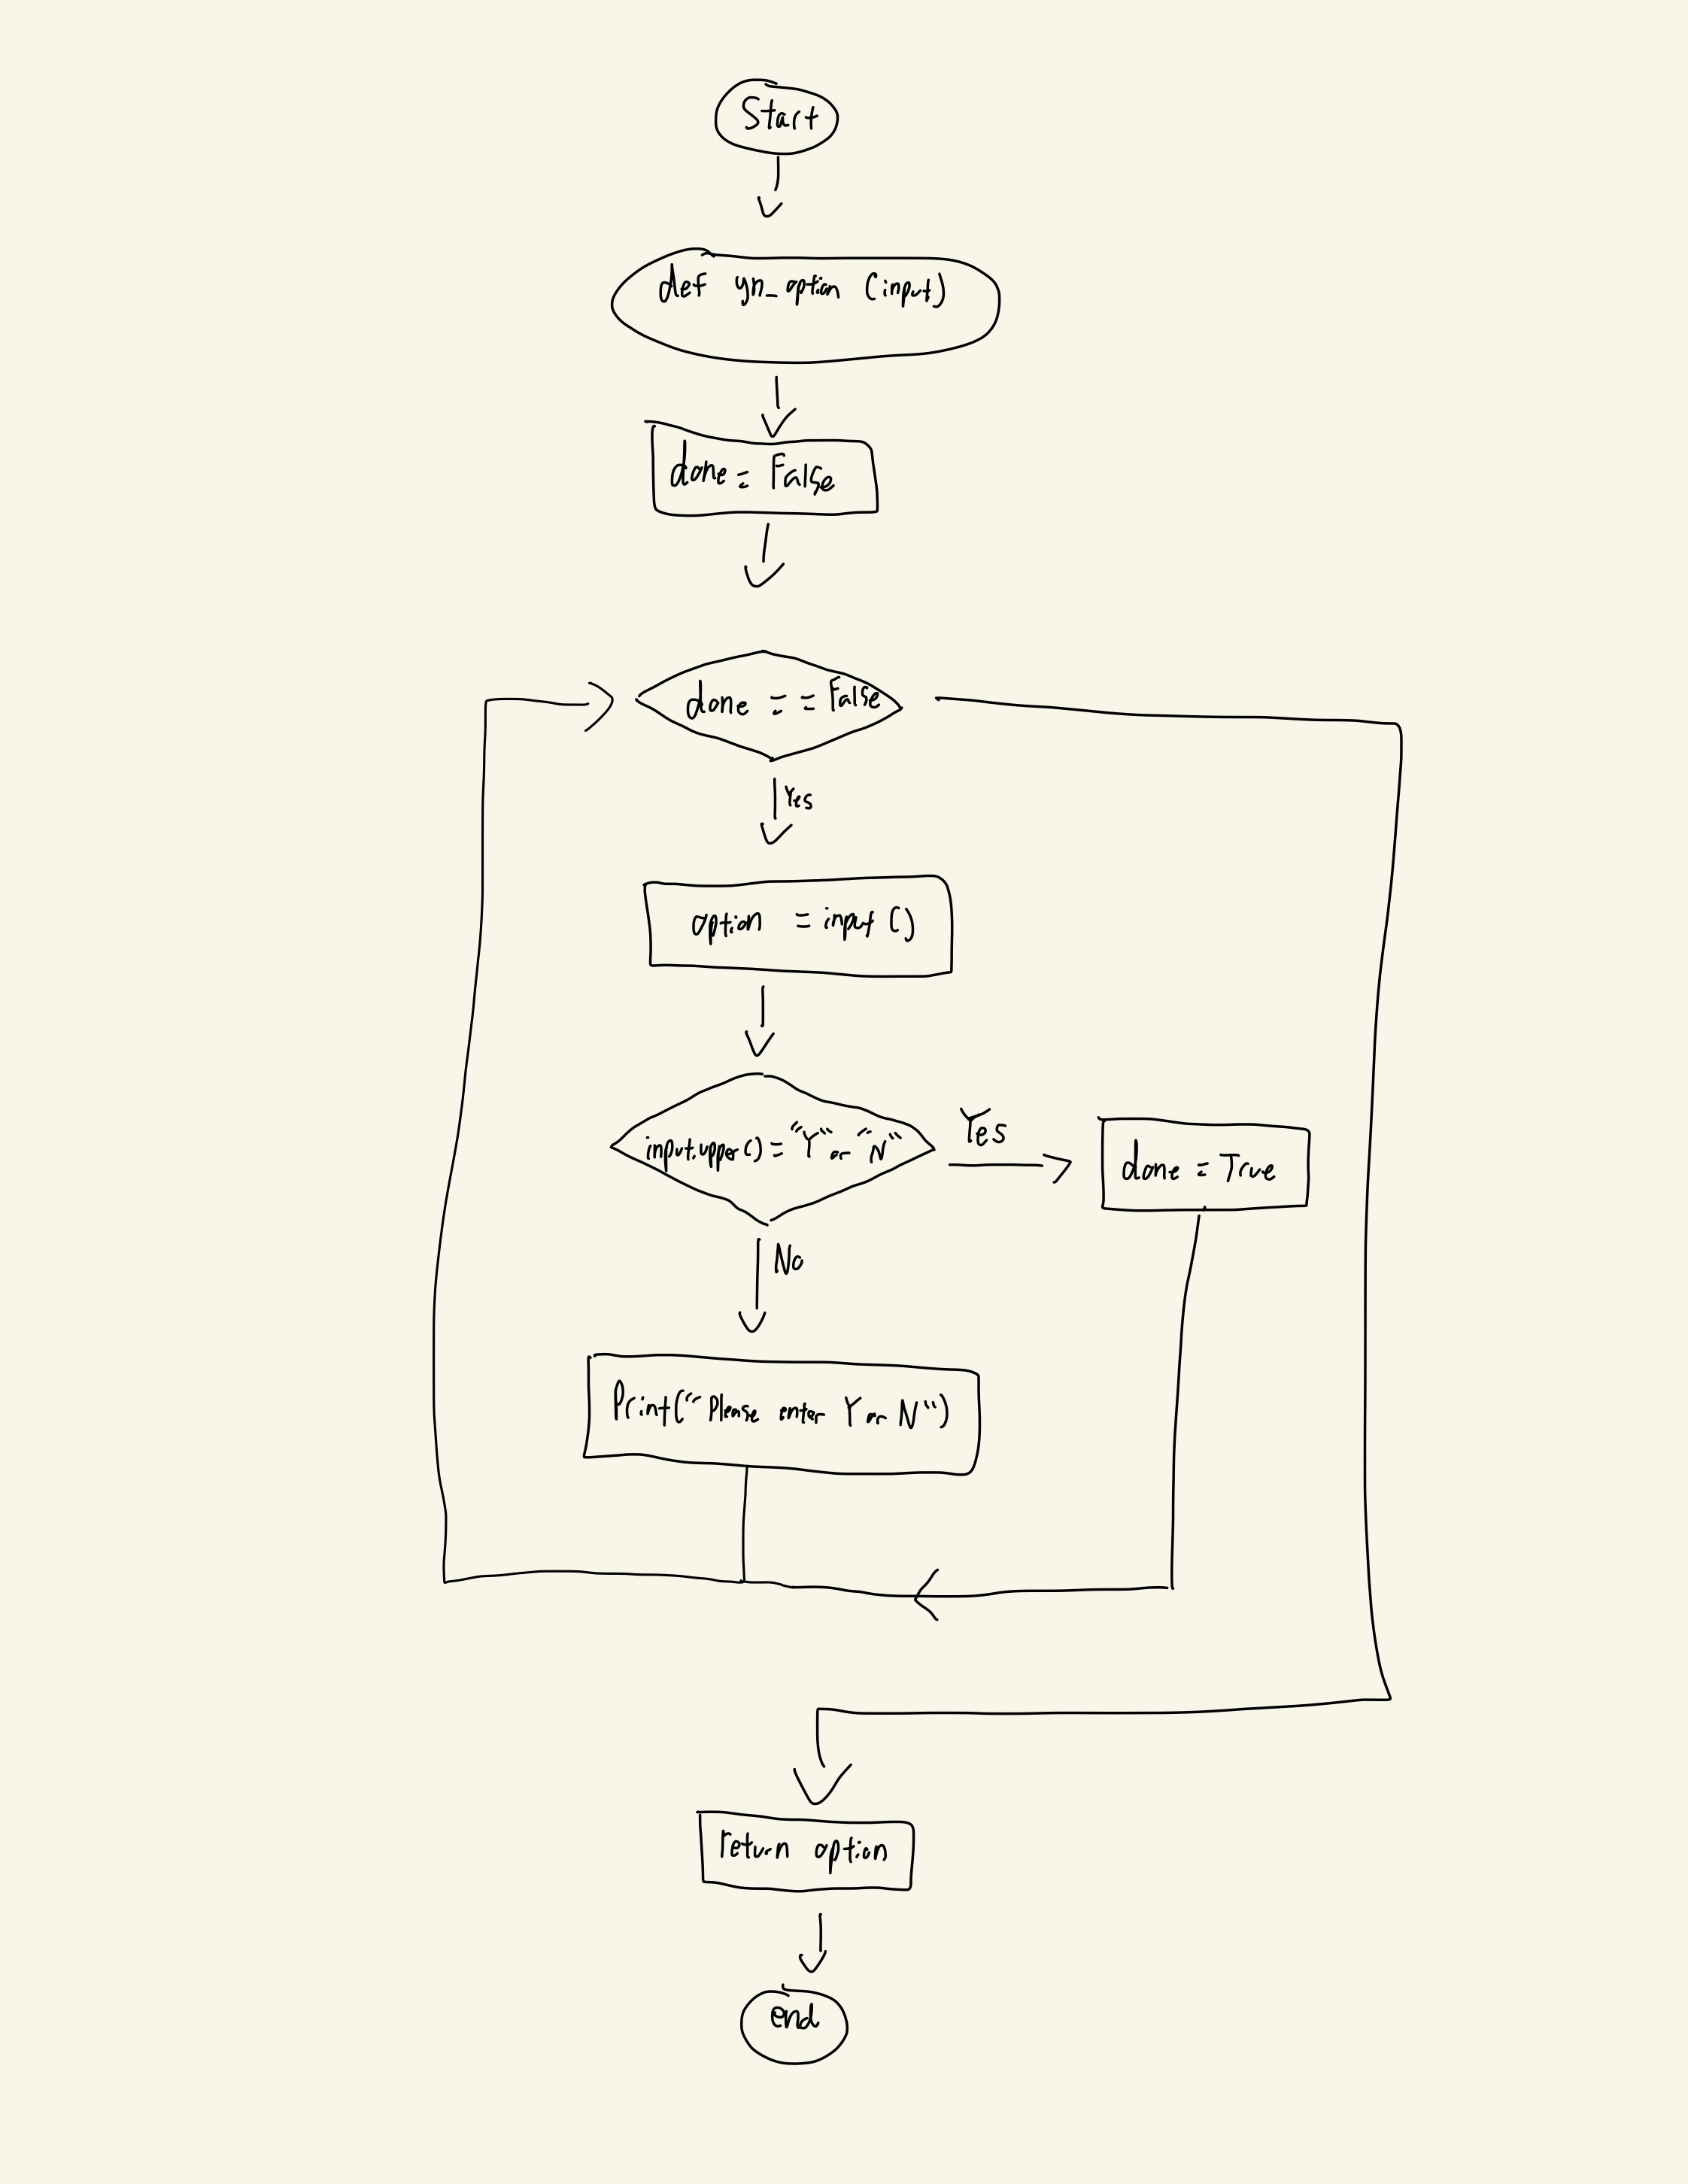 Start
def yn_option (input)
done = False
done == False
Yes
option = input ()
input.upper() = "Y" or "N"
Yes
done = True
No
Print("Please enter Y or N")
return option
end